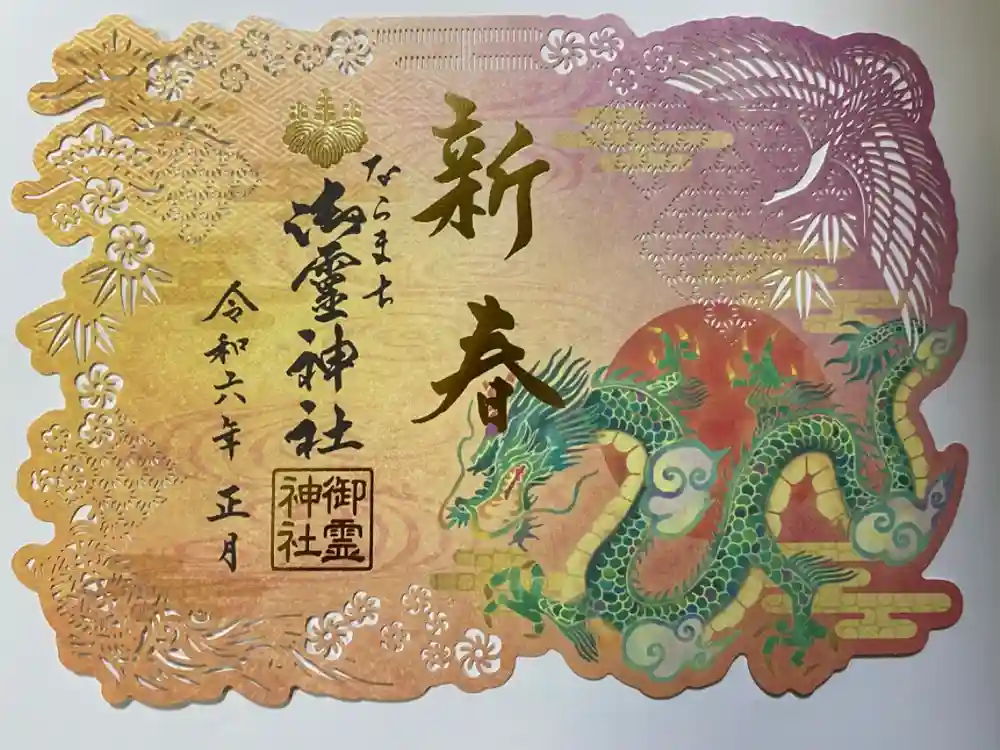 新春
ならまち
御霊神社
令和六年 正月
御霊
神社